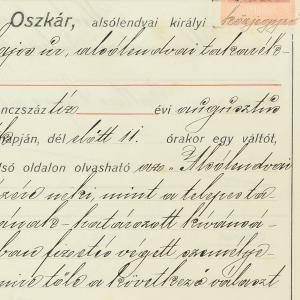 Oszkár, alsólendvai királyi
közjegyző
úr, alsólendvai takarék-
nczszáz tíz évi augusztus
napján, dél előtt 11. órakor egy váltót,
lső oldalon olvasható az „Alsólendvai
neki, mint a telepes ta-
határozott kívánsá-
fizetés végett személye-
tőle a következő választ